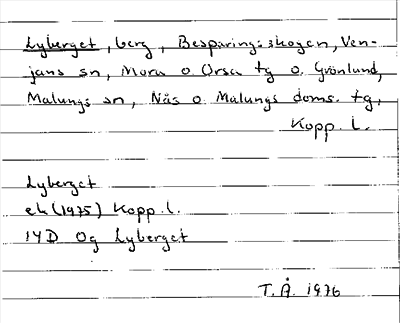 Lyberget, berg, Besparingsskogen, Ven-
jans sn, Mora o Orsa tg o. Grönlund,
Malungs sn, Nås o Malungs doms. tg,
Kopp. l.
Lyberget
ek (1975) Kopp. l.
14D Og Lyberget
T.Å. 1976